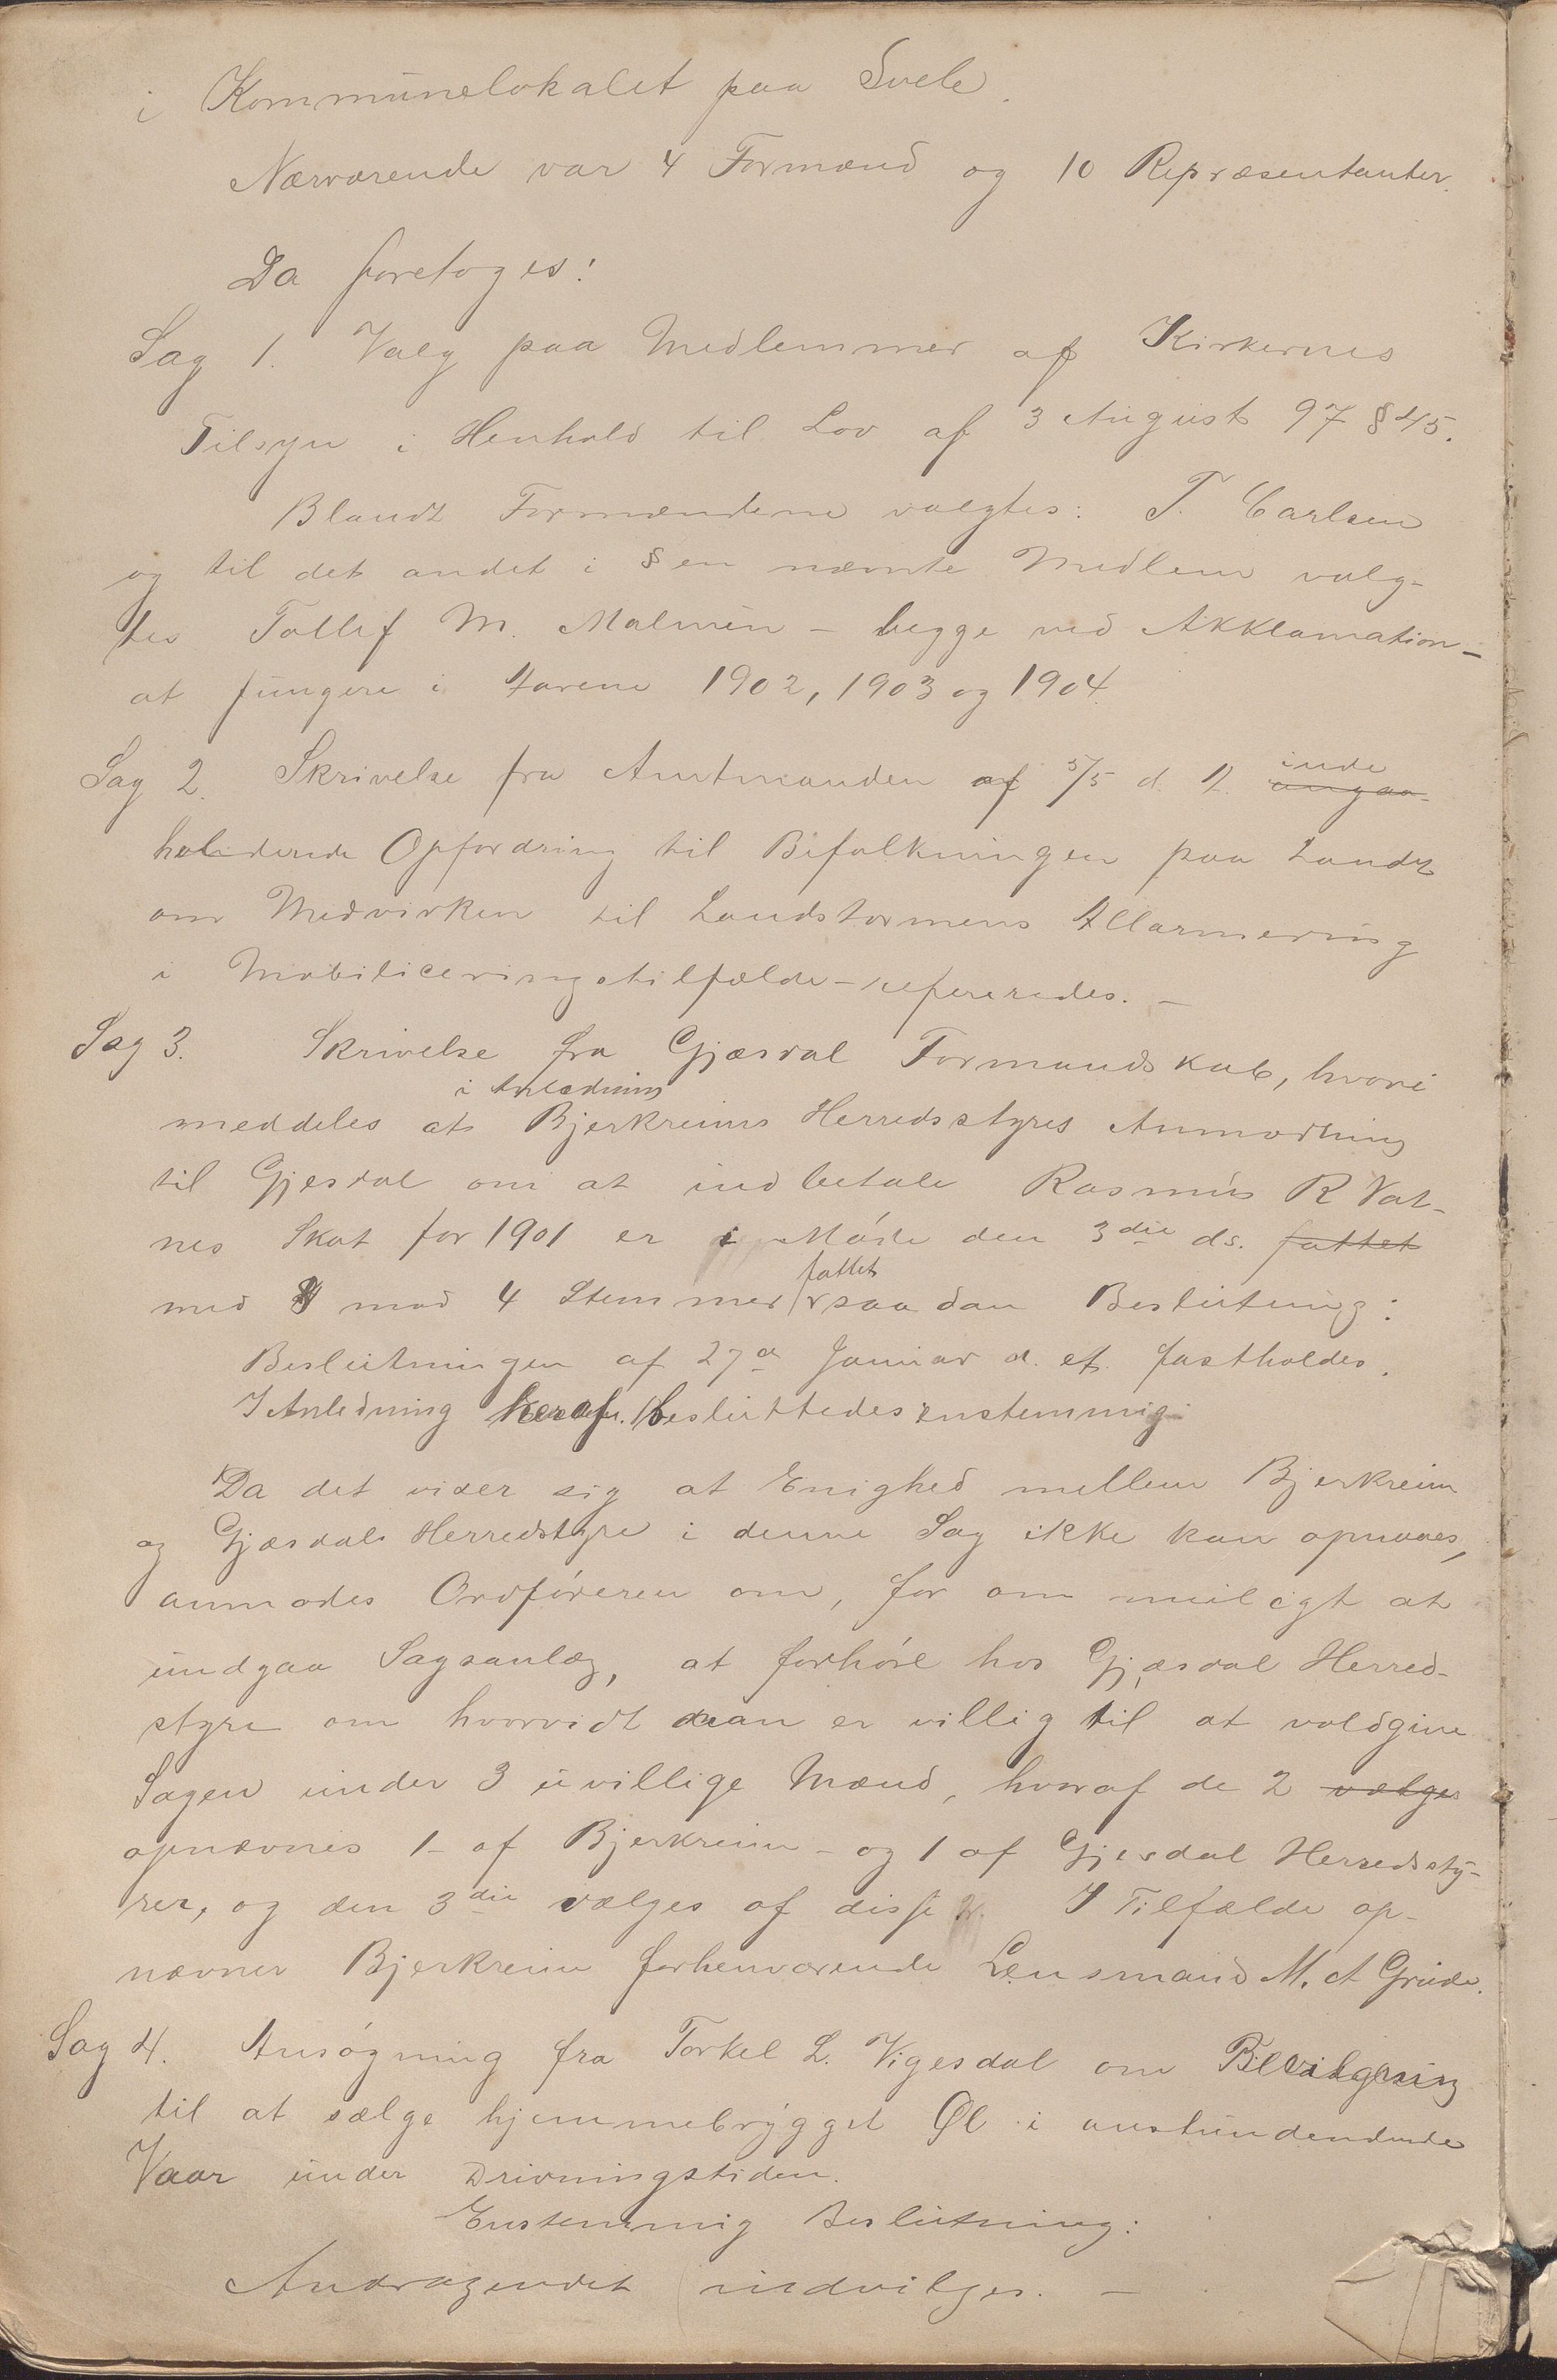 i Kommunelokalet paa Svele.
Nærværende var 4 Formænd og 10 Repræsentanter.
Da foretoges:
Sag 1. Valg paa Medlemmer af Kirkernes
Tilsyn i Henhold til Lov af 3 August 97 § 45.
Blandt Formændene valgtes: T. Carlsen
og til det andet i § en nævnte Medlem valg-
tes Tollef M. Malmin - begge ved Akklamation -
at fungere i Aarene 1902, 1903 og 1904.
Sag 2. Skrivelse fra Amtmanden af 5/5 d. A. inde
angaa-
holdende Opfordring til Befolkningen paa Landet
om Medvirken til Landstormens Allarmering
i Mobiliceringstilfælde - refereredes. -
Sag 3. Skrivelse fra Gjæsdal Formandskab, hvori
i Anledning
meddeles at Bjerkreims Herredsstyres Anmodning
til Gjesdal om at indbetale Rasmus R Vat-
nes Skat for 1901 er i Møde den 3die ds. fattet
fattet
med 8 mod 4 Stemmer saadan Beslutning:
Beslutningen af 27de Januar d. A. fastholdes.
I Anledning heraf besluttedes enstemmig:
Da det viser sig at Enighed mellem Bjerkreim
og Gjæsdals Herredstyre i denne Sag ikke kan opnaaes,
anmodes Ordføreren om, for om muligt at
undgaa Sagsanlæg, at forhøre hos Gjæsdal Herred-
styre om hvorvidt man er villig til at voldgive
Sagen under 3 uvillige Mænd, hvoraf de 2 vælges
opnævnes 1 - af Bjerkreim - og 1 af Gjesdal Herredsty-
rer, og den 3die vælges af disse 2. I Tilfælde op-
nævner Bjerkreim forhenværende Lensmand M. A Grude.
Sag 4. Ansøgning fra Torkel L. Vigesdal om Bevilgning
til at sælge hjemmebrygget Øl i anstundendende
Vaar under Drivningstiden.
Enstemmig Beslutning:
Andragendet indvilges. -